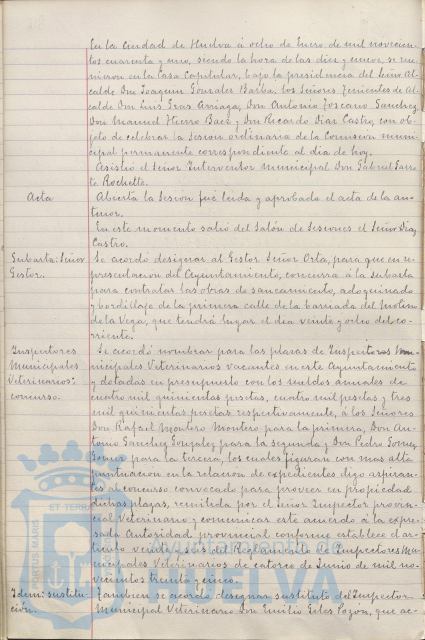 En la Ciudad de Huelva á ocho de Enero de mil novecien-
tos cuarenta y uno, siendo la hora de las diez y nueve, se reu-
nieron en la Casa Capitular, bajo la presidencia del Señor Al-
calde Don Joaquin Gonzalez Barba, los Señores Tenientes de Al-
calde Don Luis Arriaga, Don Antonio Toscano Sanchez,
Don Manuel Hierro Baez y Don Ricardo Diaz Castro, con ob-
jeto de celebrar la sesion ordinaria de la Comision muni-
cipal permanente correspondiente al dia de hoy.
Asistió el Señor Interventor municipal Don Gabriel
Rochette.
Acta Abierta la sesion fué leida y aprobada el acta de la an-
terior.
En este momento salio del Salón de Sesiones el Señor Diaz
Castro.
Subasta: Señor Se acordó designar al Gestor Señor Orta, para que en re-
Gestor. presentacion del Ayuntamiento, concurra á la subasta
para contratar las obras de saneamiento, adoquinado
y bordillaje de la primera calle de la barriada del Molino
de la Vega, que tendrá lugar el dia veinte y ocho del co-
rriente.
Inspectores Se acordó nombrar para las plazas de Inspectores Mu-
Municipales nicipales Veterinarios vacantes en este Ayuntamiento
Veterinarios: y dotadas en presupuesto con los sueldos anuales de
concurso. cuatro mil quinientas pesetas, cuatro mil pesetas y tres
mil quinientas pesetas respectivamente, á los Señores
Don Rafael Montero Montero para la primera, Don An-
tonio Sanchez Gonzalez para la segunda y Don Pedro Gomez
Gomez para la tercera, los cuales figuran con mas alta
puntuacion en la relacion de expedientes digo aspiran-
tes al concurso convocado para proveer en propiedad
dichas plazas, remitida por el Señor Inspector provin-
cial Veterinario y comunicar este acuerdo á la expre-
sada Autoridad provincial conforme establece el ar-
ticulo veinte y seis del Reglamento de Inspectores Mu-
nicipales Veterinarios de catorce de Junio de mil no-
vecientos treinta y cinco.
Idem: sustitu- Tambien se acordó designar sustituto del Inspector
ción. Municipal Veterinario Don Emilio Pozon, que ac-
PORTUS MARIS
ET TERRAE
Ayuntamiento de
HUELVA